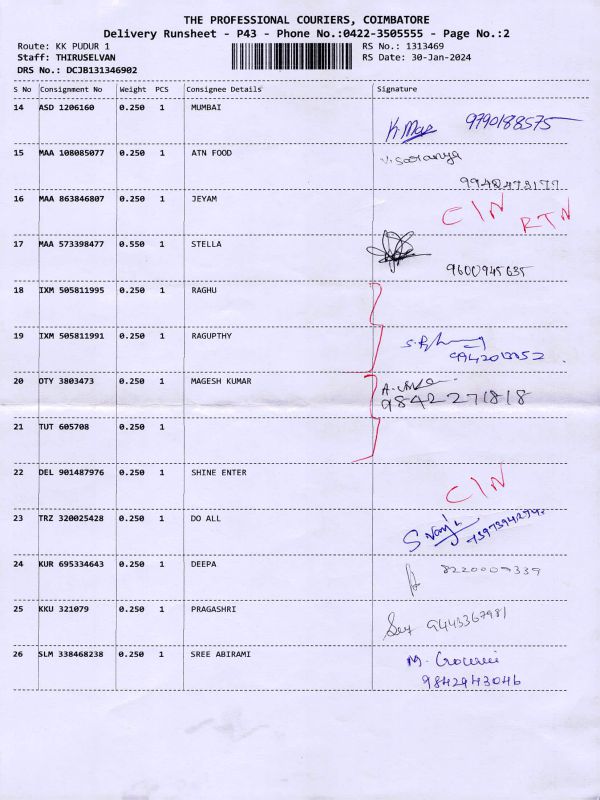 THE PROFESSIONAL COURIERS, COIMBATORE
Delivery Runsheet - P43 - Phone No.:0422-3505555 - Page No.:2
Route: KK PUDUR 1 RS No.: 1313469
Staff: THIRUSELVAN RS Date: 30-Jan-2024
DRS No.: DCJB131346902
S No Consignment No Weight PCS Consignee Details Signature
14 ASD 1206160 0.250 1 MUMBAI
9790188575
15 MAA 108085077 0.250 1 ATN FOOD V. Saranya
16 MAA 863846807 0.250 1 JEYAM C/N RTN
17 MAA 573398477 0.550 1 STELLA
9600945635
18 IXM 505811995 0.250 1 RAGHU
19 IXM 505811991 0.250 1 RAGUPTHY
20 OTY 3803473 0.250 1 MAGESH KUMAR
9842271818
21 TUT 605708 0.250 1
22 DEL 901487976 0.250 1 SHINE ENTER C/N
23 TRZ 320025428 0.250 1 DO ALL
24 KUR 695334643 0.250 1 DEEPA 8220009339
25 KKU 321079 0.250 1 PRAGASHRI 9443367981
26 SLM 338468238 0.250 1 SREE ABIRAMI
9842943046